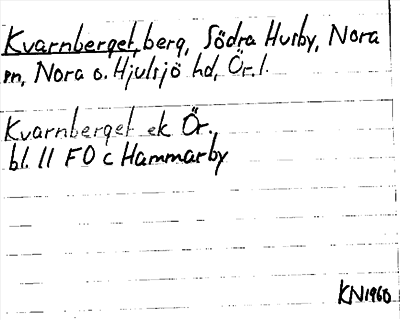 Kvarnberget, berg, Södra Husby, Nora
sn, Nora o. Hjulsjö hd, Ör. l.
Kvarnberget ek Ör.
bl. 11 F0 c Hammarby
KN1960